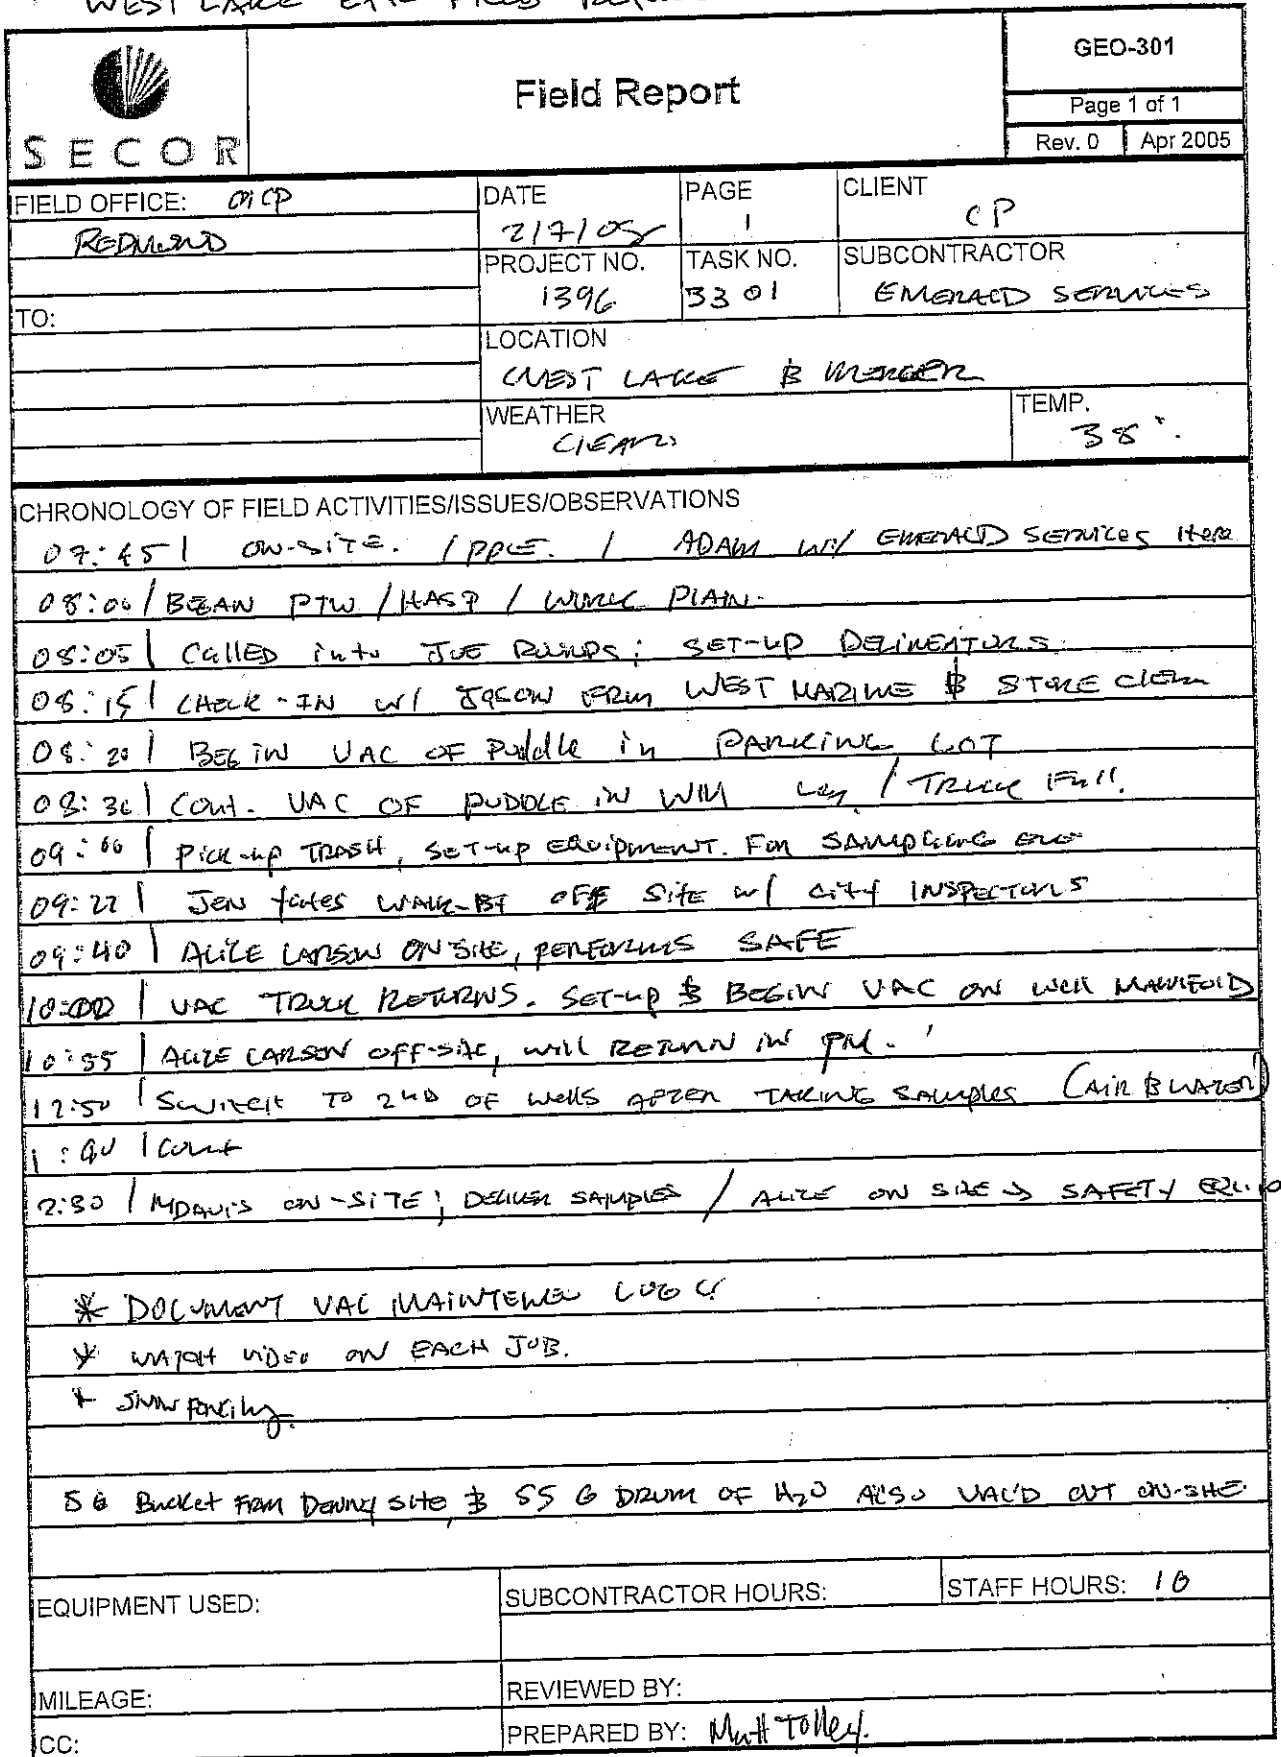 WEST LAKE
GEO-301
Field Report
Page 1 of 1
SECOR
Rev. 0 Apr 2005
FIELD OFFICE: CP DATE PAGE CLIENT
REDMOND 2/7/05 1 CP
PROJECT NO. TASK NO. SUBCONTRACTOR
1396 3301 EMERALD SERVICES
TO:
LOCATION
WEST LAKE & MERCER
WEATHER TEMP.
CLEAR 38°
CHRONOLOGY OF FIELD ACTIVITIES/ISSUES/OBSERVATIONS
07:45 | ON-SITE. / PPE. / ADAM W/ EMERALD SERVICES Here
08:00 / BEGAN PTW / HASP / WORK PLAN.
08:05 | CALLED into JOE; SET-UP DELINEATORS.
08:15 | CHECK-IN W/ JASON FROM WEST MARINE & STORE
08:20 | BEGIN VAC OF Puddle in PARKING LOT
08:30 | Cont. VAC OF PUDDLE IN / TRUCK Full.
09:00 | Pick-up TRASH, SET-up EQUIPMENT. For SAMPLING
09:22 | JEN Yates WALK-BY OFF Site w/ City INSPECTORS
09:40 | ALICE LARSON ON SITE, PERFORMS SAFE
10:00 | VAC TRUCK RETURNS. SET-up & BEGIN VAC ON WELL MANIFOLD
10:55 | ALICE LARSON OFF-SITE, will RETURN IN PM.
12:50 | SWITCH TO 2ND OF WELLS AFTER TAKING SAMPLES (AIR & WATER)
| Cont
2:30 / MDAVIS ON-SITE; DELIVER SAMPLES / ALICE ON SITE → SAFETY
* DOCUMENT VAC LOG
* WATCH VIDEO ON EACH JOB.
* Fencing.
5 G Bucket FROM Denny site, & 55 G DRUM OF H2O ALSO VAC'D OUT ON-SITE.
EQUIPMENT USED: SUBCONTRACTOR HOURS: STAFF HOURS: 10
MILEAGE: REVIEWED BY:
CC: PREPARED BY: Matt Tolley.